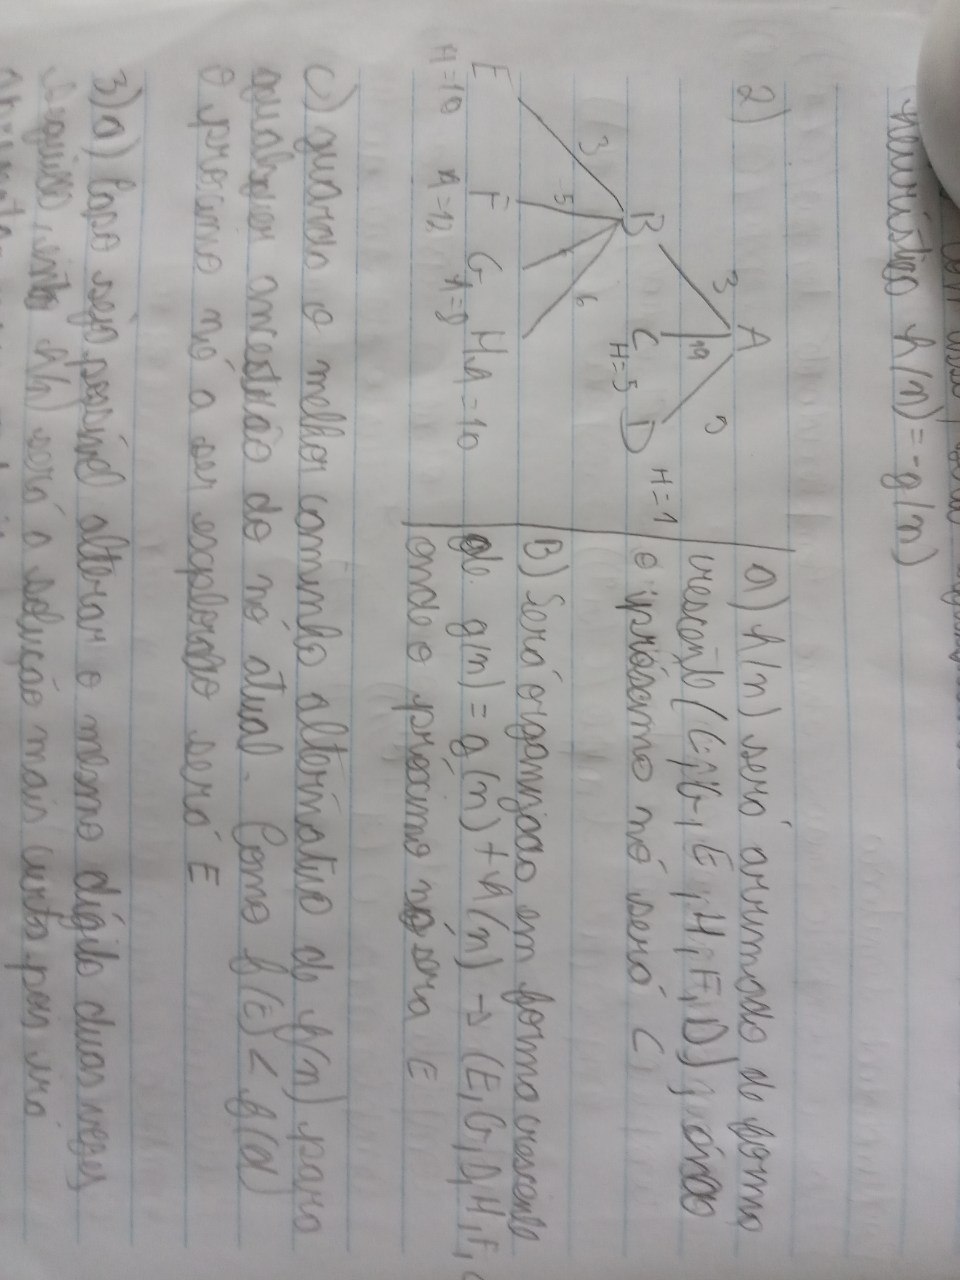 heurística h(n) = -g(n)
2)
A
3
19
5
B
C
H=5
D
H=1
3
5
6
E
F
G
H
H=10
h=12
h=8
h=10
a) h(n) será arrumado de forma
crescente (C, E, H, F, D), então
o próximo nó será C
B) Será organizado em forma crescente
de g(n) = g(n) + h(n) → (E, G, D, H, F, C
onde o próximo nó será E
c) guarda o melhor caminho alternativo de f(n) para
qualquer ancestral do nó atual. Como f(E) < f(d)
o próximo nó a ser explorado será E
3) a) Caso seja possível alterar o mesmo dígito duas vezes
seguidas, então h(n) será a solução mais curta pois irá